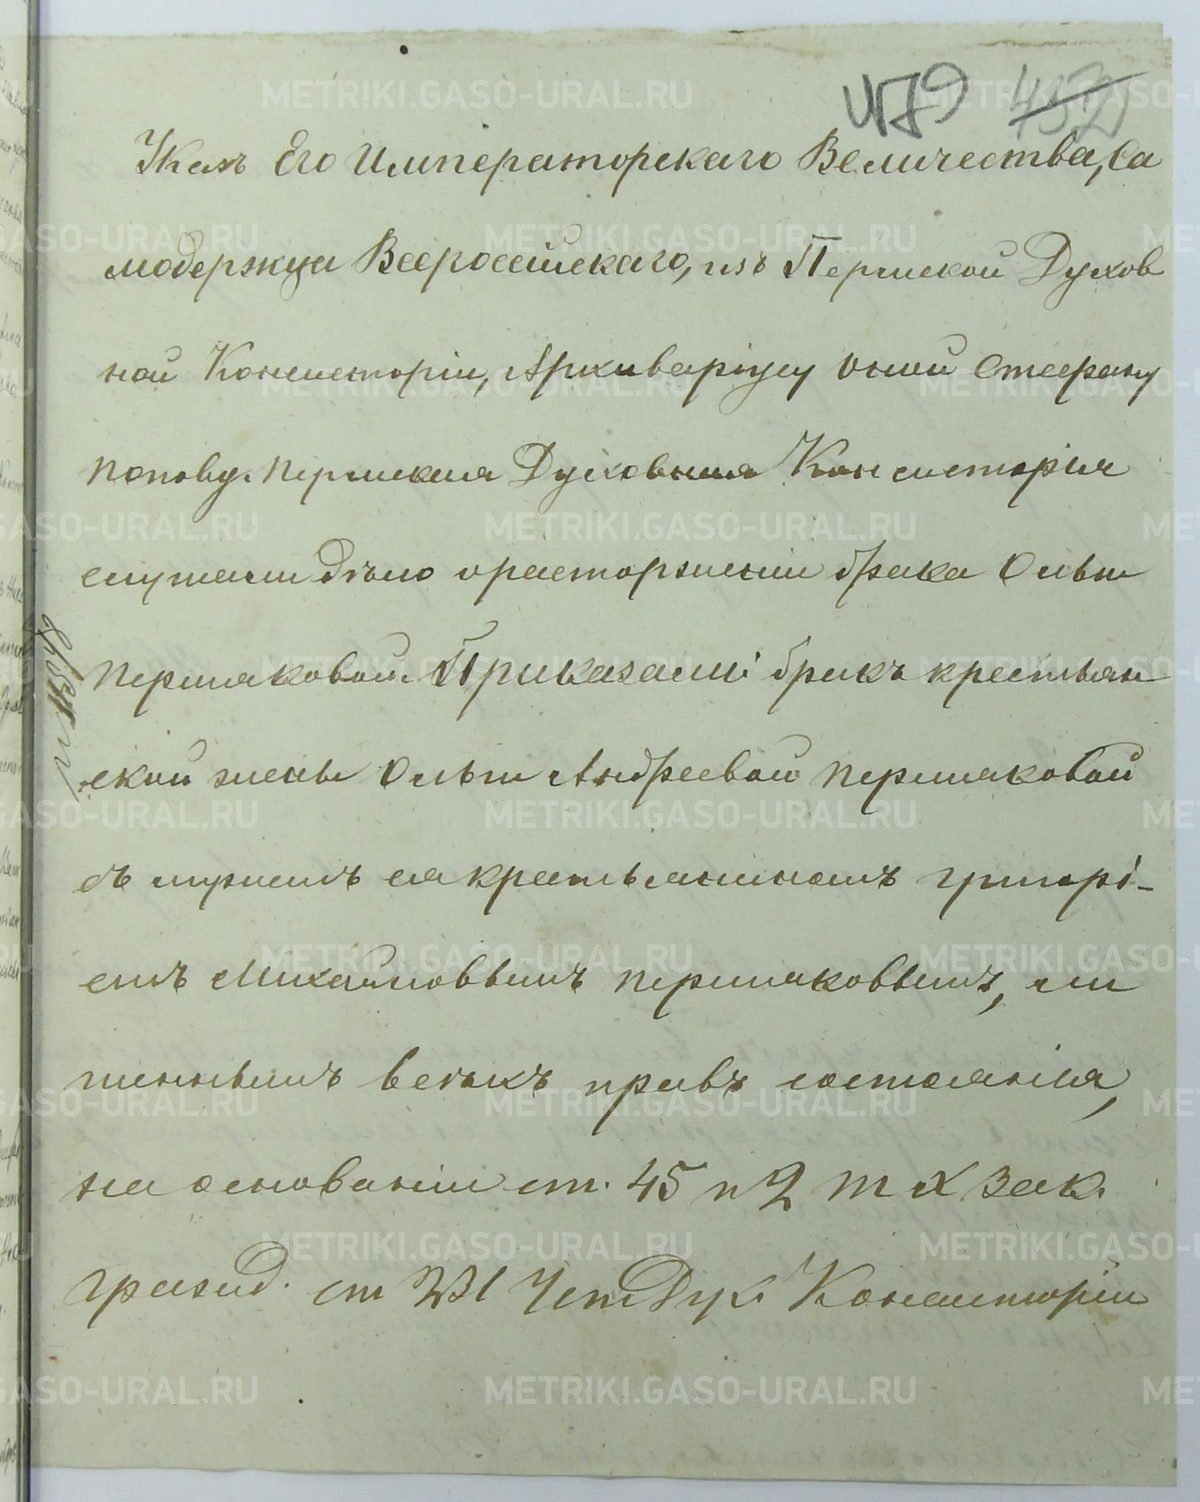 479 432
Указъ Его Императорскаго Величества, Са
модержца Всероссійскаго, изъ Пермской Духов
ной Консисторіи, Архиваріусу оной Стефану
Попову. Пермская Духовная Консисторія
слушали дѣло о расторженіи брака Ольги
Пермяковой. Приказали: бракъ крестьян
ской жены Ольги Андреевой Пермяковой
съ мужемъ ея крестьяниномъ Григорі-
емъ Михайловымъ Пермяковымъ, ли
шеннымъ всѣхъ правъ состоянія,
на основаніи ст. 45 п 2 т X Зак.
гражд. ст 231 Уст Дух. Консисторіи
METRIKI.GASO-URAL.RU